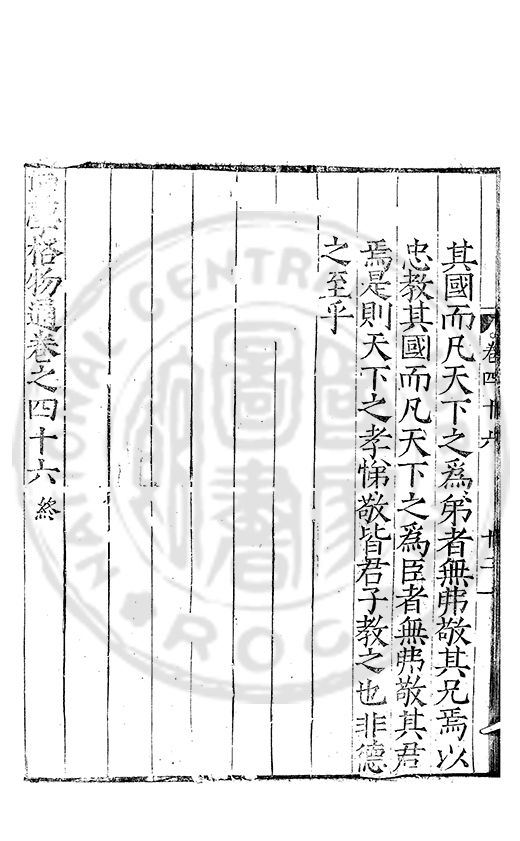 卷四十六
十二
其國而凡天下之爲弟者無弗敬其兄焉以
忠教其國而凡天下之爲臣者無弗敬其君
焉是則天下之孝悌敬皆君子教之也非德
之至乎
學格物通卷之四十六 終
NATIONAL CENTRAL
圖書